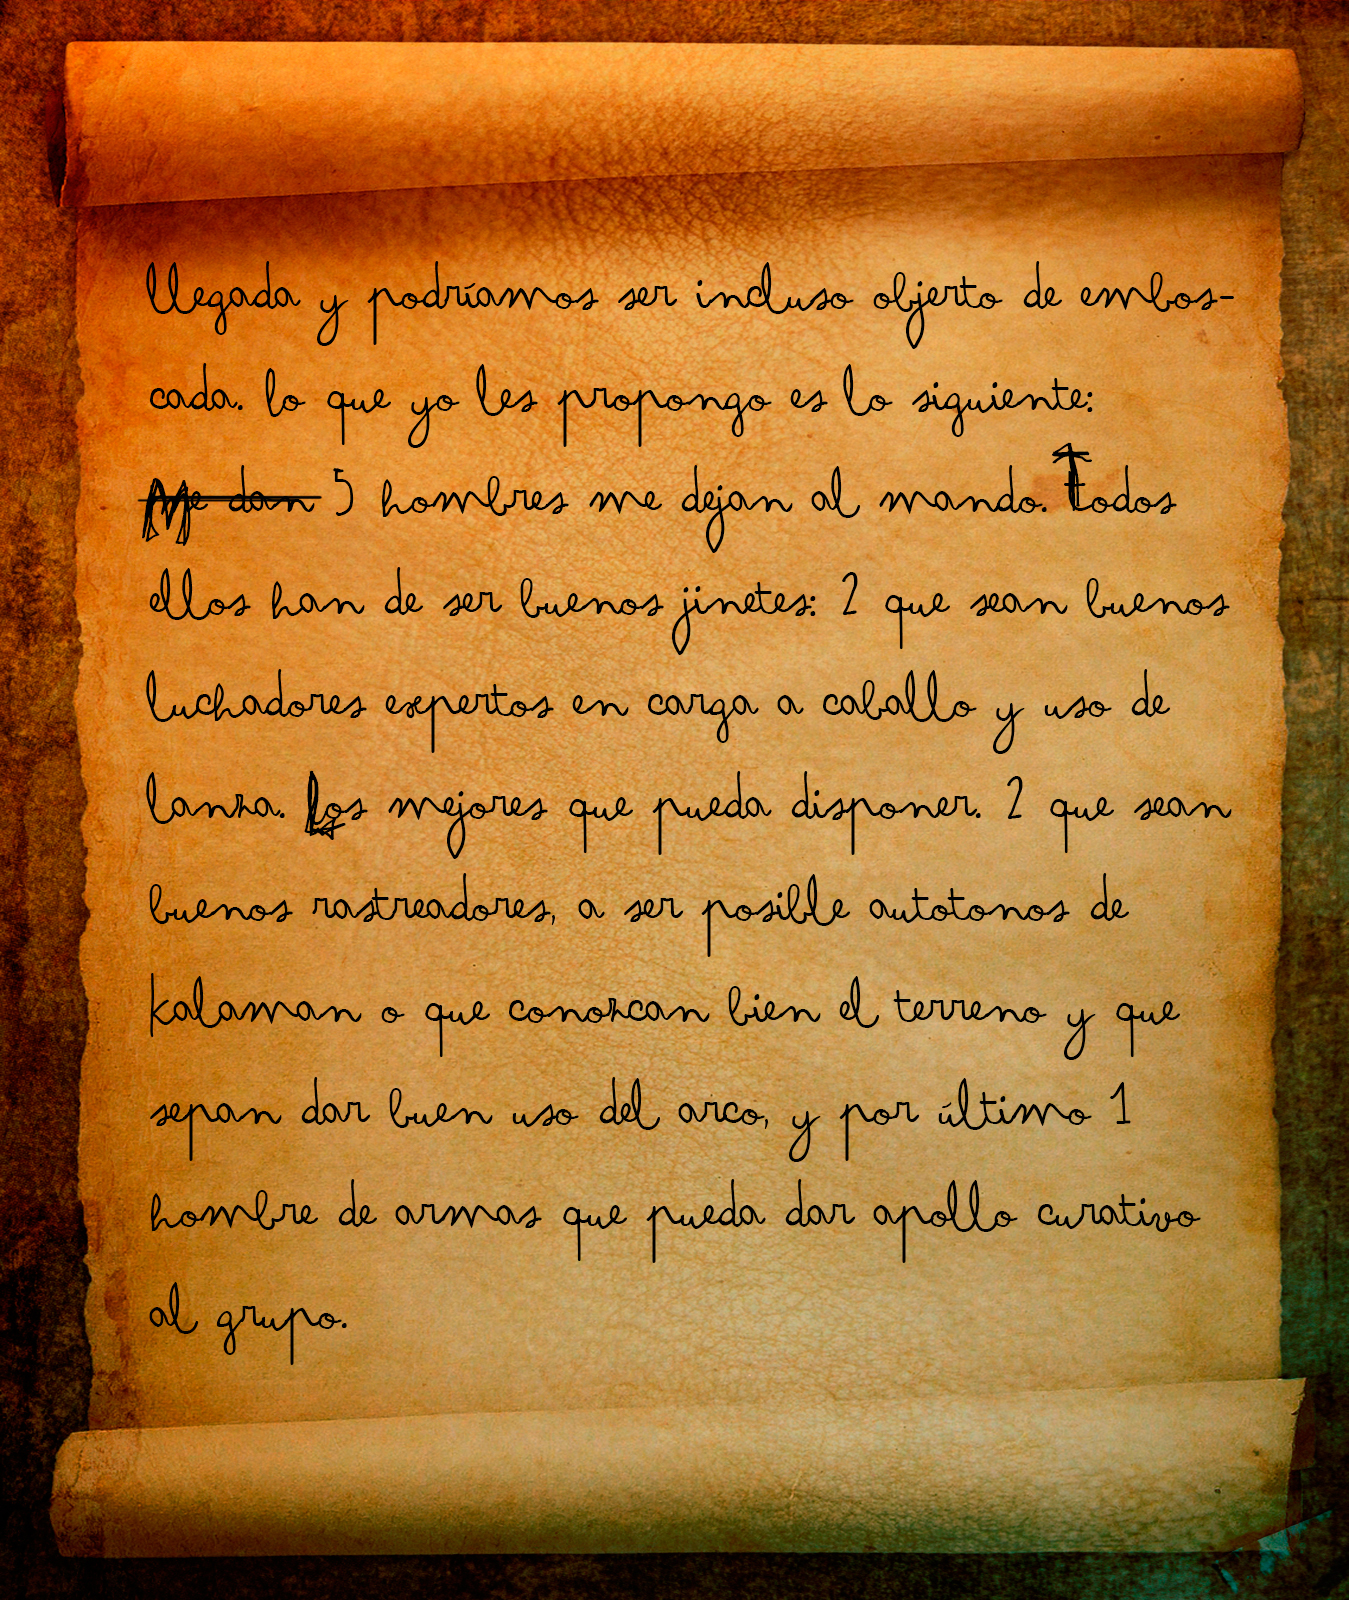 llegada y podríamos ser incluso objerto de embos-
cada. lo que yo les propongo es lo siguiente:
Me dan 5 hombres me dejan al mando. Todos
ellos han de ser buenos jinetes: 2 que sean buenos
luchadores expertos en carga a caballo y uso de
lanza. Los mejores que pueda disponer. 2 que sean
buenos rastreadores, a ser posible autotonos de
kalaman o que conozcan bien el terreno y que
sepan dar buen uso del arco, y por último 1
hombre de armas que pueda dar apollo curativo
al grupo.